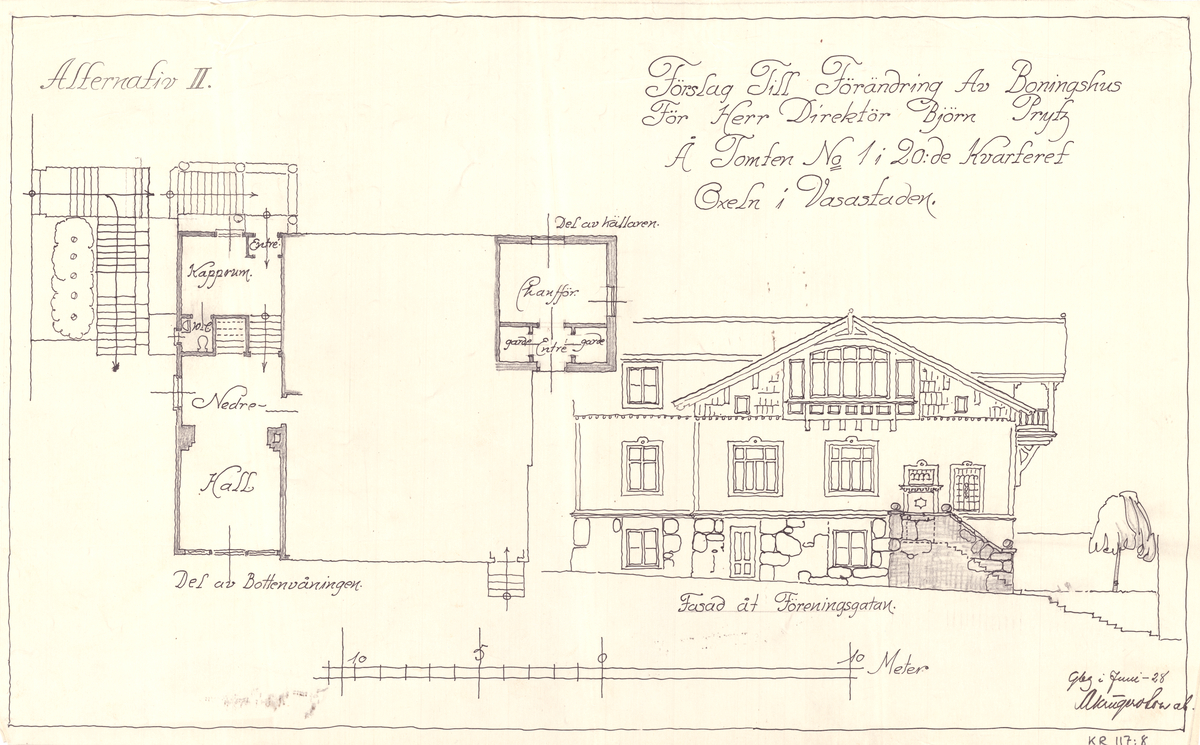 Alternativ II.
Förslag Till Förändring Av Boningshus
För Herr Direktör Björn Prytz
Å Tomten No 1 i 20:de Kvarteret
Oxeln i Vasastaden.
Del av källaren.
Entré
Kapprum.
Chaufför.
garde
Entré
garde
Nedre-
Hall
Del av Bottenvåningen.
Fasad åt Föreningsgatan.
10 5 0 10 Meter
Gbg i Juni -28
KR 117:8